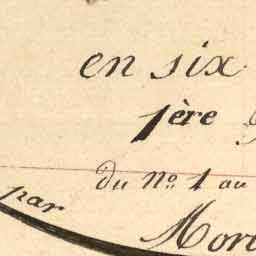 en six
1ère
du No. 1 au
par